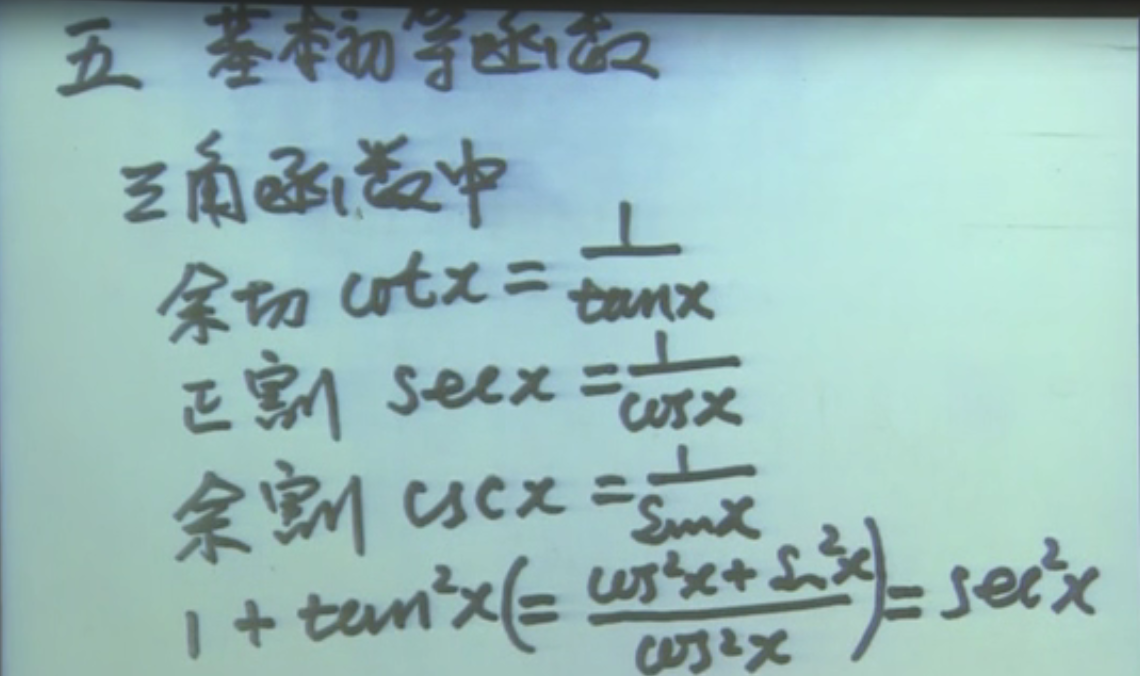 五 基本初等函数
三角函数中
余切 cotx = 1/tanx
正割 secx = 1/cosx
余割 cscx = 1/sinx
1 + tan²x (= (cos²x + sin²x)/cos²x) = sec²x